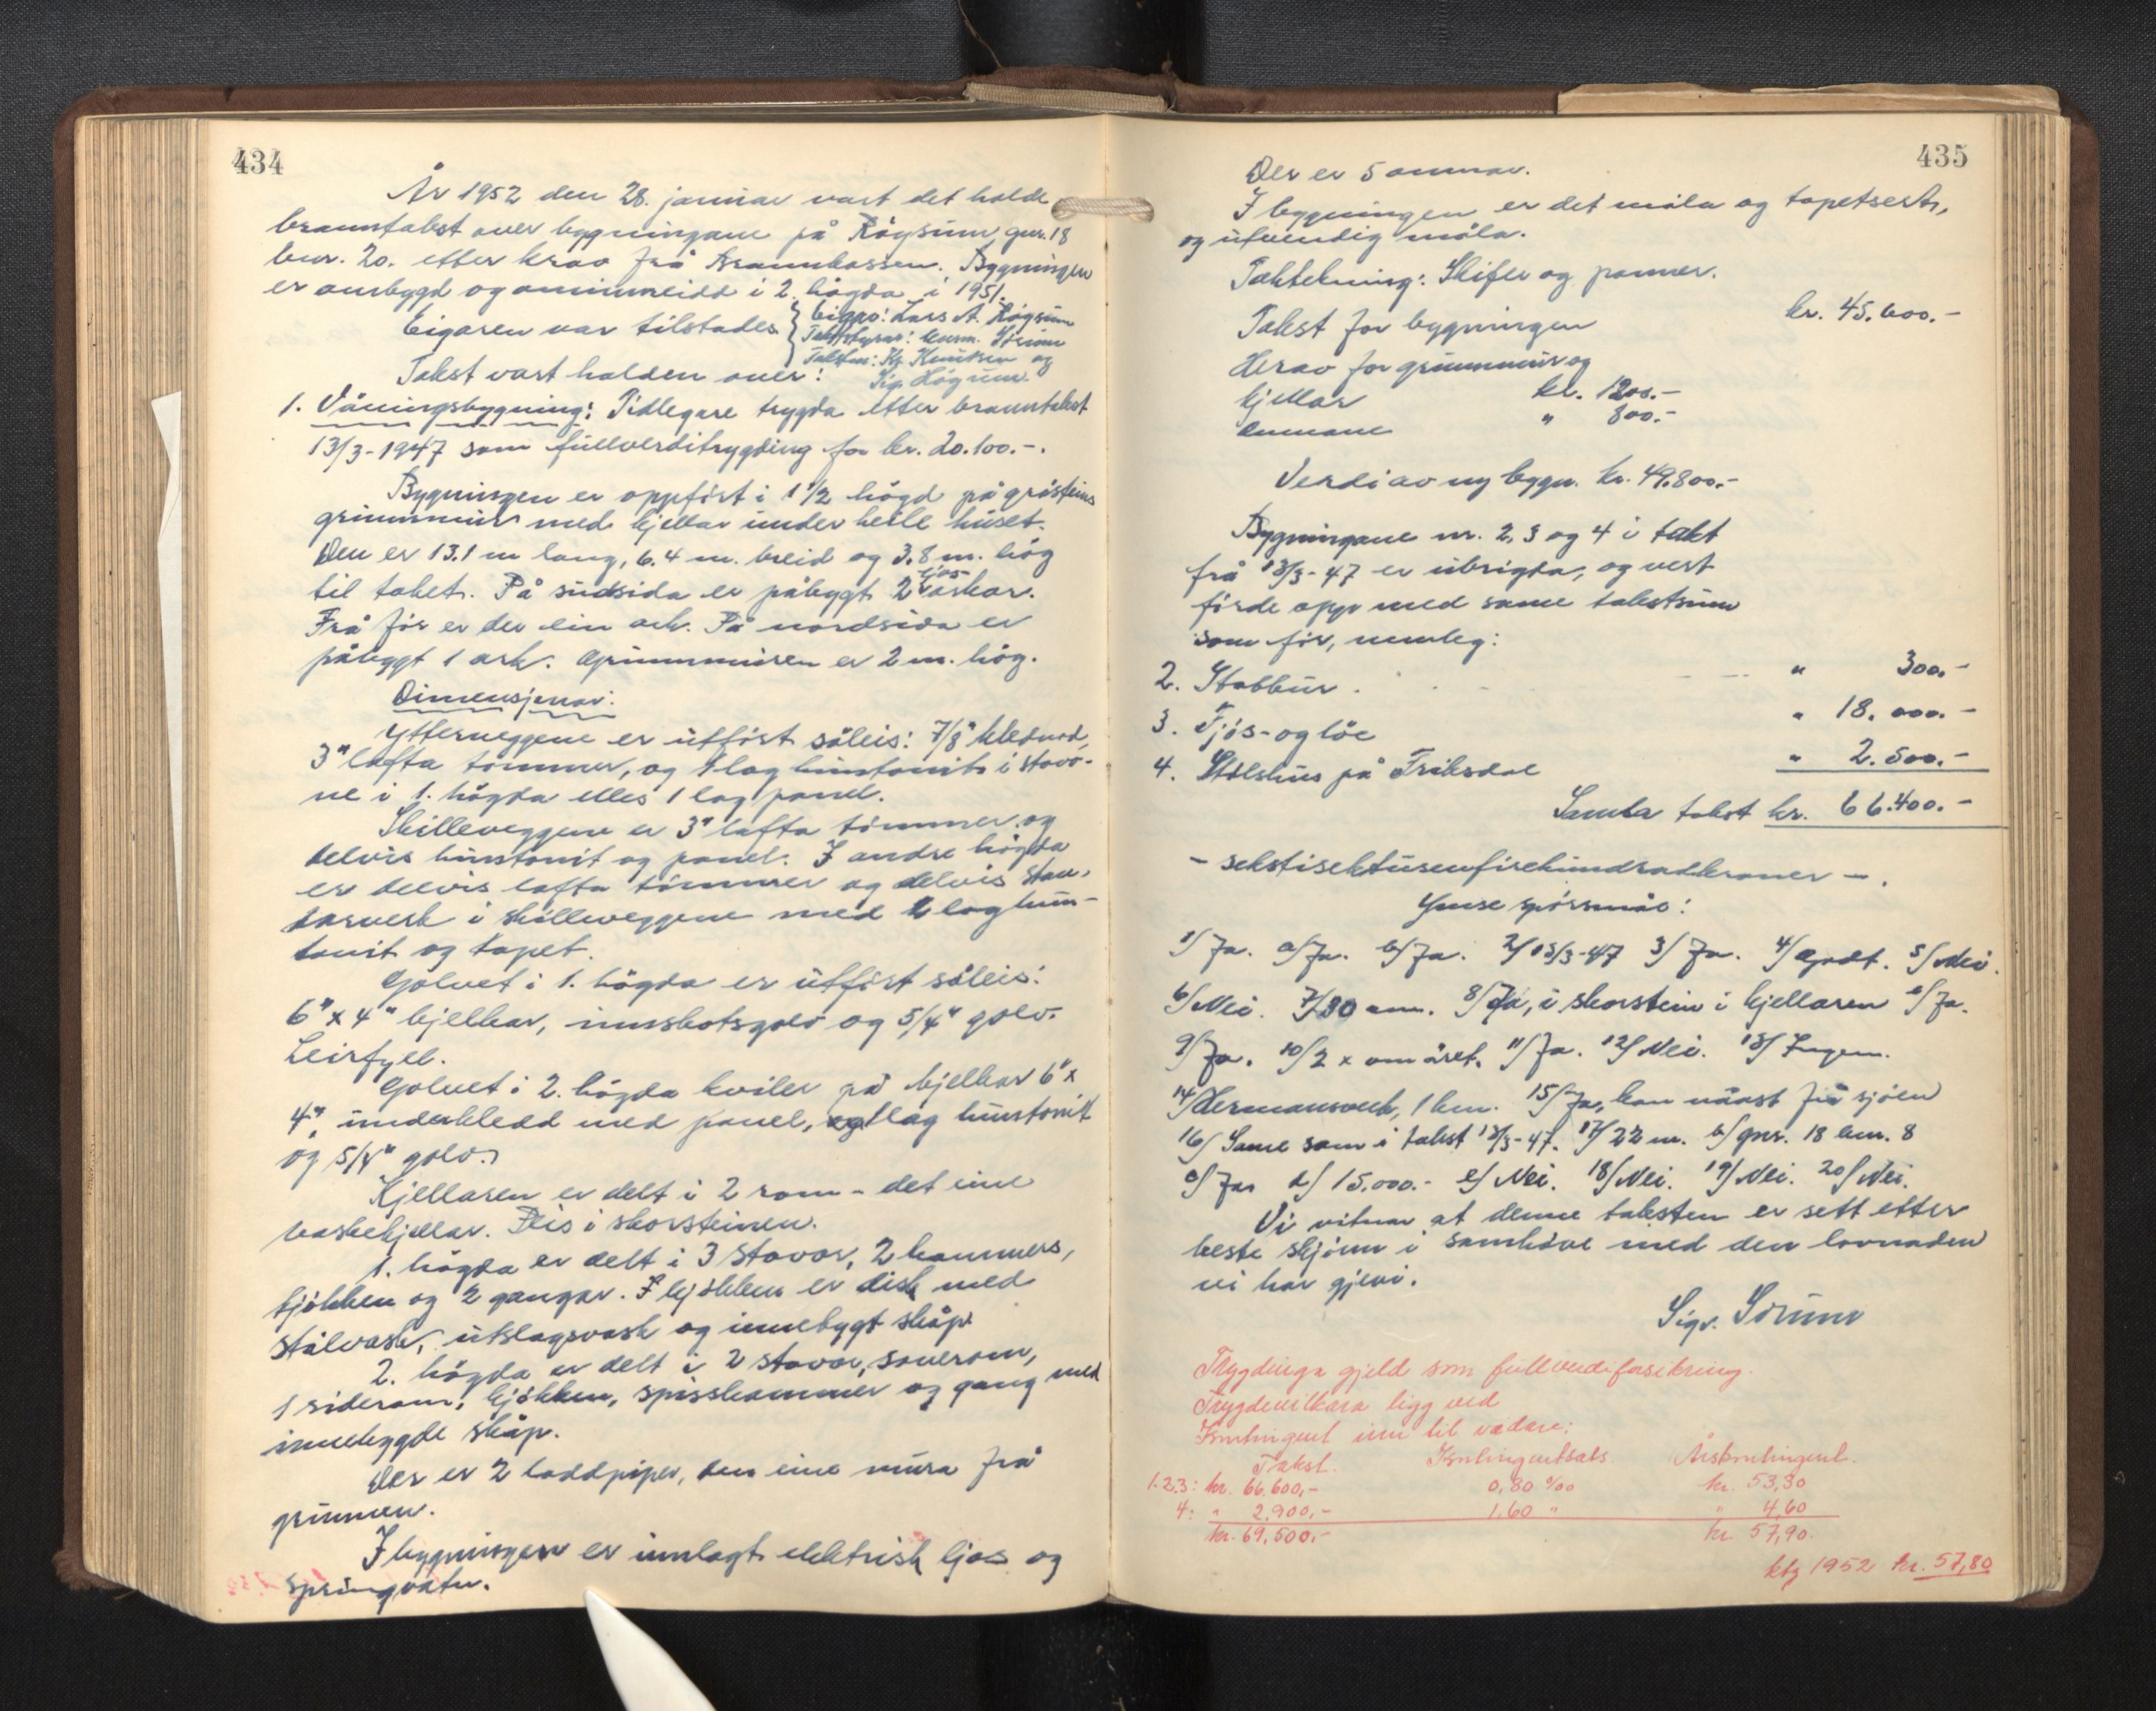 434
År 1952 den 28. januar vart det halde
branntakst over bygningane på Høgsum, gnr. 18
bnr. 20. etter krav frå Brannkassen. Bygningen
er ombygd og ominnreidd i 2. høgda i 1951.
Eigaren var tilstades
Eigar: Lars A. Høgsum
Takststyrar: lensm. Sørum
Takstm: Kr. Knutsen og
Sig. Høgum.
Takst vart halden over:
1. Våningsbygning: Tidlegare trygda etter branntakst
13/3-1947 som fullverditrygding for kr. 20.100.-.
Bygningen er oppført i 1 1/2 høgd på gråsteins
grunnmur med kjellar under heile huset.
Den er 13.1 m lang, 6.4 m. breid og 3.8 m. høg
til taket. På sudsida er påbygt 2 arkar.
Frå før er der ein ark. På nordsida er
påbygt 1 ark. Grunnmuren er 2 m. høg.
Dimensjonar:
Ytterveggene er utført såleis: 7/8" kledned,
3" lafta tømmer, og 1 lag huntonit i stovo-
ne i 1. høgda elles 1 lag panel.
Skilleveggene er 3" lafta tømmer og
delvis huntonit og panel. I andre høgda
er delvis lafta tømmer og delvis stan-
darverk i skilleveggene med 2 lag hun-
tonit og tapet.
Golvet i 1. høgda er utført såleis:
6" x 4" bjelkar, innskotsgolv og 5/4" golv.
Leirfyll.
Golvet i 2. høgda kviler på bjelkar 6" x
4" underkledd med panel, 1 lag huntonit
og 5/4" golv.
Kjellaren er delt i 2 rom - det eine
vaskekjellar. Peis i skorsteinen.
1. høgda er delt i 3 stovor, 2 kammers,
kjøkken og 2 gangar. I kjøkken er disk med
stålvask, utslagsvask og innebygt skåp.
2. høgda er delt i 2 stovor, soverom,
1 siderom, kjøkken, spisskammer og gang med
innebygde skåp.
Der er 2 loddpiper, den eine mura frå
grunnen.
I bygningen er innlagt elektrisk ljos og
springvatn.
435
Der er 5 omnar.
I bygningen er det måla og tapetsert,
og utvendig måla.
Taktekning: Skifer og panner.
Takst for bygningen kr. 45.600.-
Herav for grunnmur og
kjellar kr. 1200.-
omnane " 800.-
Verdi av ny bygn. kr. 49.800.-
Bygningane nr. 2, 3 og 4 i takt
frå 13/3-47 er ubrigda, og vert
førde opp med same takstsum
som før, nemleg:
2. Stabbur " 300.-
3. Fjøs- og løe " 18.000.-
4. Stølshus på Friksdal " 2.500.-
Samla takst kr. 66.400.-
- sekstisekstusenfirehundradkroner -.
Ymse spørsmål:
1/ Ja. a/ Ja. b/ Ja. 2/ 13/3-47 3/ Ja. 4/ Godt. 5/ Nei.
6/ Nei. 7/ 30 cm. 8/ Ja, i skorstein i kjellaren e/ Ja.
9/ Ja. 10/ 2 x om året. 11/ Ja. 12/ Nei. 13/ Ingen.
14/ Hermansverk, 1 km. 15/ Ja, kan nåast frå sjøen
16/ Same som i takst 13/3-47. 17/ 22 m. b/ gnr. 18 bnr. 8
c/ Ja. d/ 15.000.- e/ Nei. 18/ Nei. 19/ Nei. 20/ Nei.
Vi vitnar at denne taksten er sett etter
beste skjønn i samhøve med den lovnaden
vi har gjevi.
Sigv. Sørum
Trygdinga gjeld som fullverdiforsikring.
Trygdevilkåra ligg ved
Kontingent inn til vidare:
Takst. Kontingentsats. Årskontingent.
1.2.3: kr. 66.600,- 0,80 ‰ kr. 53,30
4: " 2.900,- 1.60 " " 4,60
kr. 69,500,- kr. 57,90.
ktg 1952 kr. 57,80